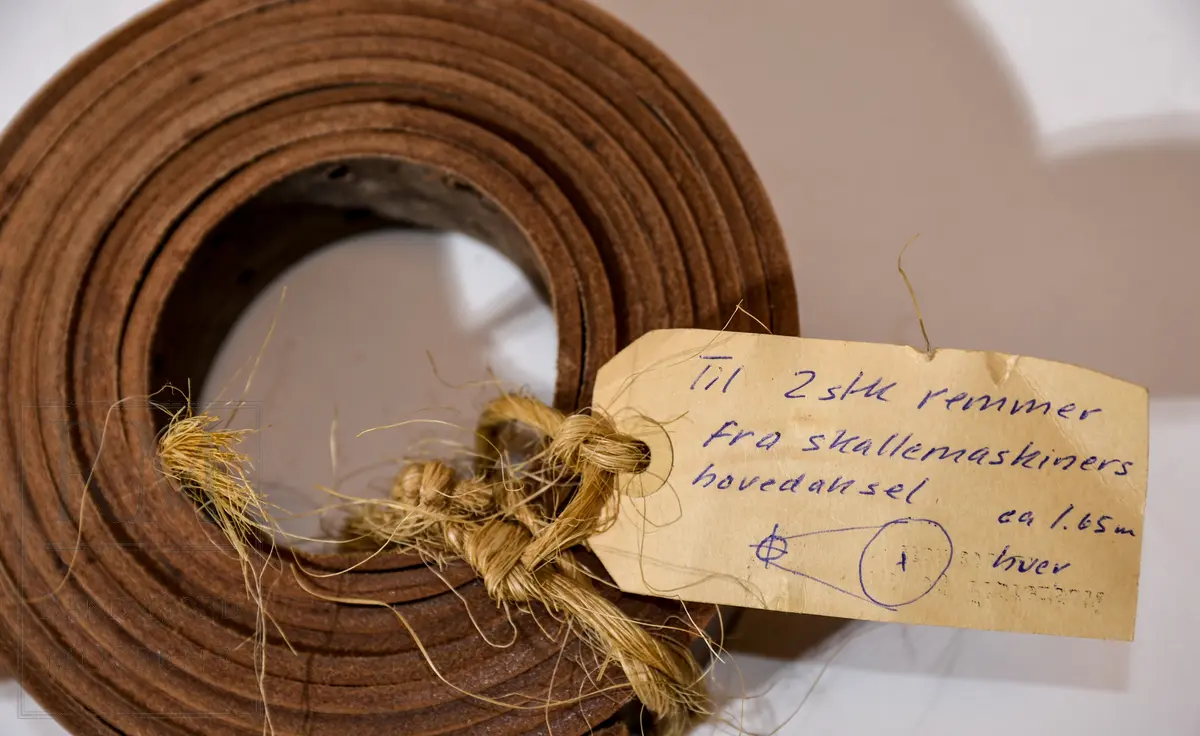 Til 2 stk remmer
fra skallemaskiners
hovedaksel
ca 1.65 m
hver